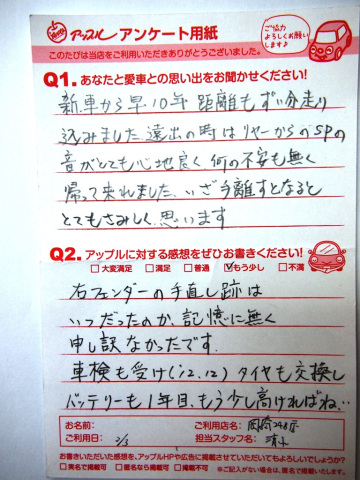 アップル アンケート用紙
このたびは当店をご利用いただきありがとうございました。
ご協力
よろしくお願い
します♪
Q1. あなたと愛車との思い出をお聞かせください!
新車から早10年 距離もずい分走り
込みました 遠出の時はリヤーからのSPの
音がとても心地良く 何の不安も無く
帰って来れました、いざ手離すとなると
とてもさみしく思います
Q2. アップルに対する感想をぜひお書きください!
□大変満足 □満足 □普通 ☑もう少し □不満
右フェンダーの手直し跡は
いつだったのか、記憶に無く
申し訳なかったです。
車検も受け('12.12) タイヤも交換し
バッテリーも1年目、もう少し高ければね…
お名前:
ご利用店名: 岡崎248店
ご利用日: 2/3
担当スタッフ名: 清水
お書きいただいた感想を、アップルHPや広告に掲載させていただいてもよろしいでしょうか?
□実名で掲載可 □匿名なら掲載可 □掲載不可 ※ご記入がない場合は、匿名で掲載いたします。